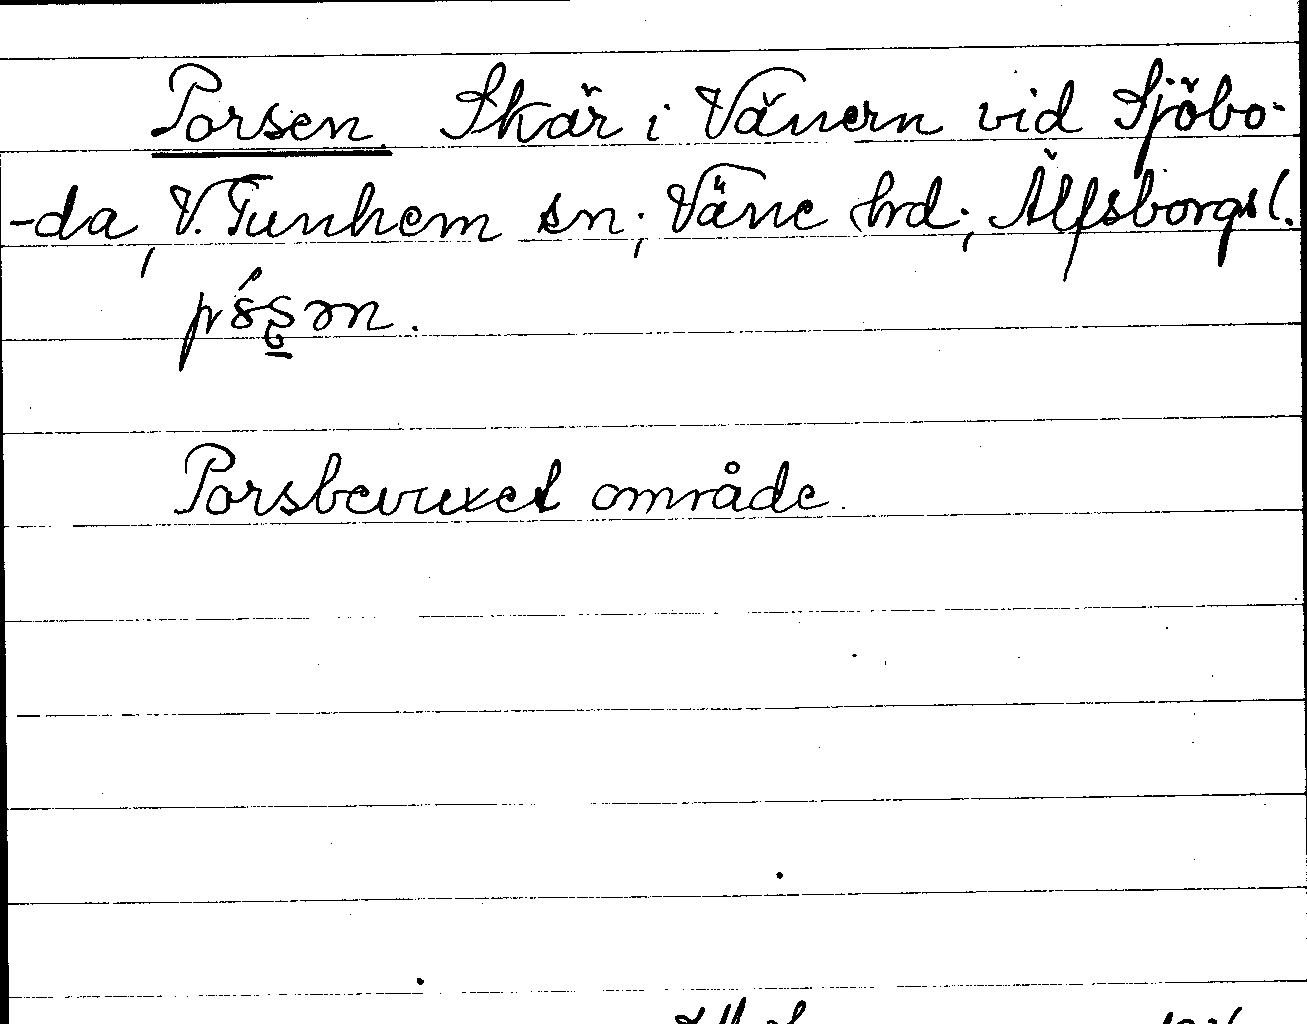 Porsen. Skär i Vänern vid Sjöbo-
-da, V. Tunhem sn; Väne hrd; Älfsborgs l.
Porsbevuxet område.